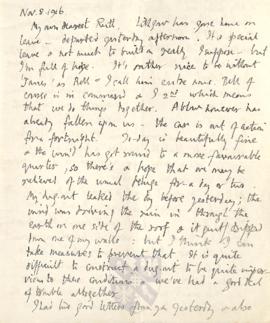 Nov. 8. 1916
My own dearest Ruth Lithgow has gone home on
leave – departed yesterday afternoon. It's special
leave & not much to build on really I suppose – but
I'm full of hope. It's rather nice to be without
James, as Bell – I call him is the name. Bell of
course is in command & I 2nd which means
that we do things together. A blow however has
already fallen upon us – the car is out of action
for a fortnight. To-day is beautifully fine
& the wind has got round to a more favourable
quarter, so there's a hope that we may be
relieved of the usual deluge for a day or two.
My dug-out leaked the day before yesterday; the
wind was driving the rain in through the
earth on one side of the roof & it quite dripped
down one of my walls: but I think I can
take measures to prevent that. It is quite
difficult to construct a dug-out to be quite imper-
vious to these conditions – we've had a good deal
of trouble altogether.
I had two good letters from you yesterday & also